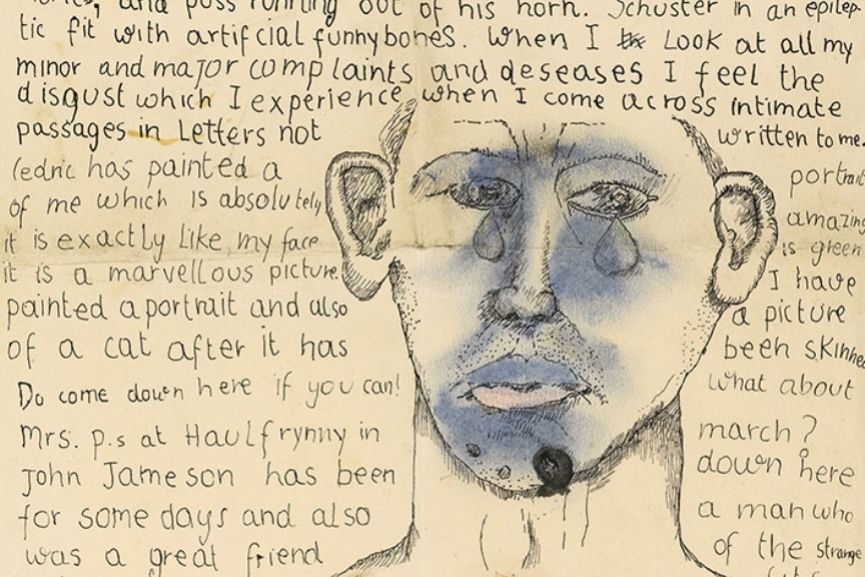 and puss running out of his horn. Schuster in an epilep-
tic fit with artifcial funnybones. When I Look at all my
minor and major complaints and deseases I feel the
disgust which I experience when I come across intimate
passages in Letters not written to me.
Cedric has painted a portrait
of me which is absolutely amazing
it is exactly like my face is green
it is a marvellous picture. I have
painted a portrait and also a picture
of a cat after it has been
Do come down here if you can! what about
Mrs. p.s at Haulfrynny in march?
John Jameson has been down here
for some days and also a man who
was a great friend of the strange